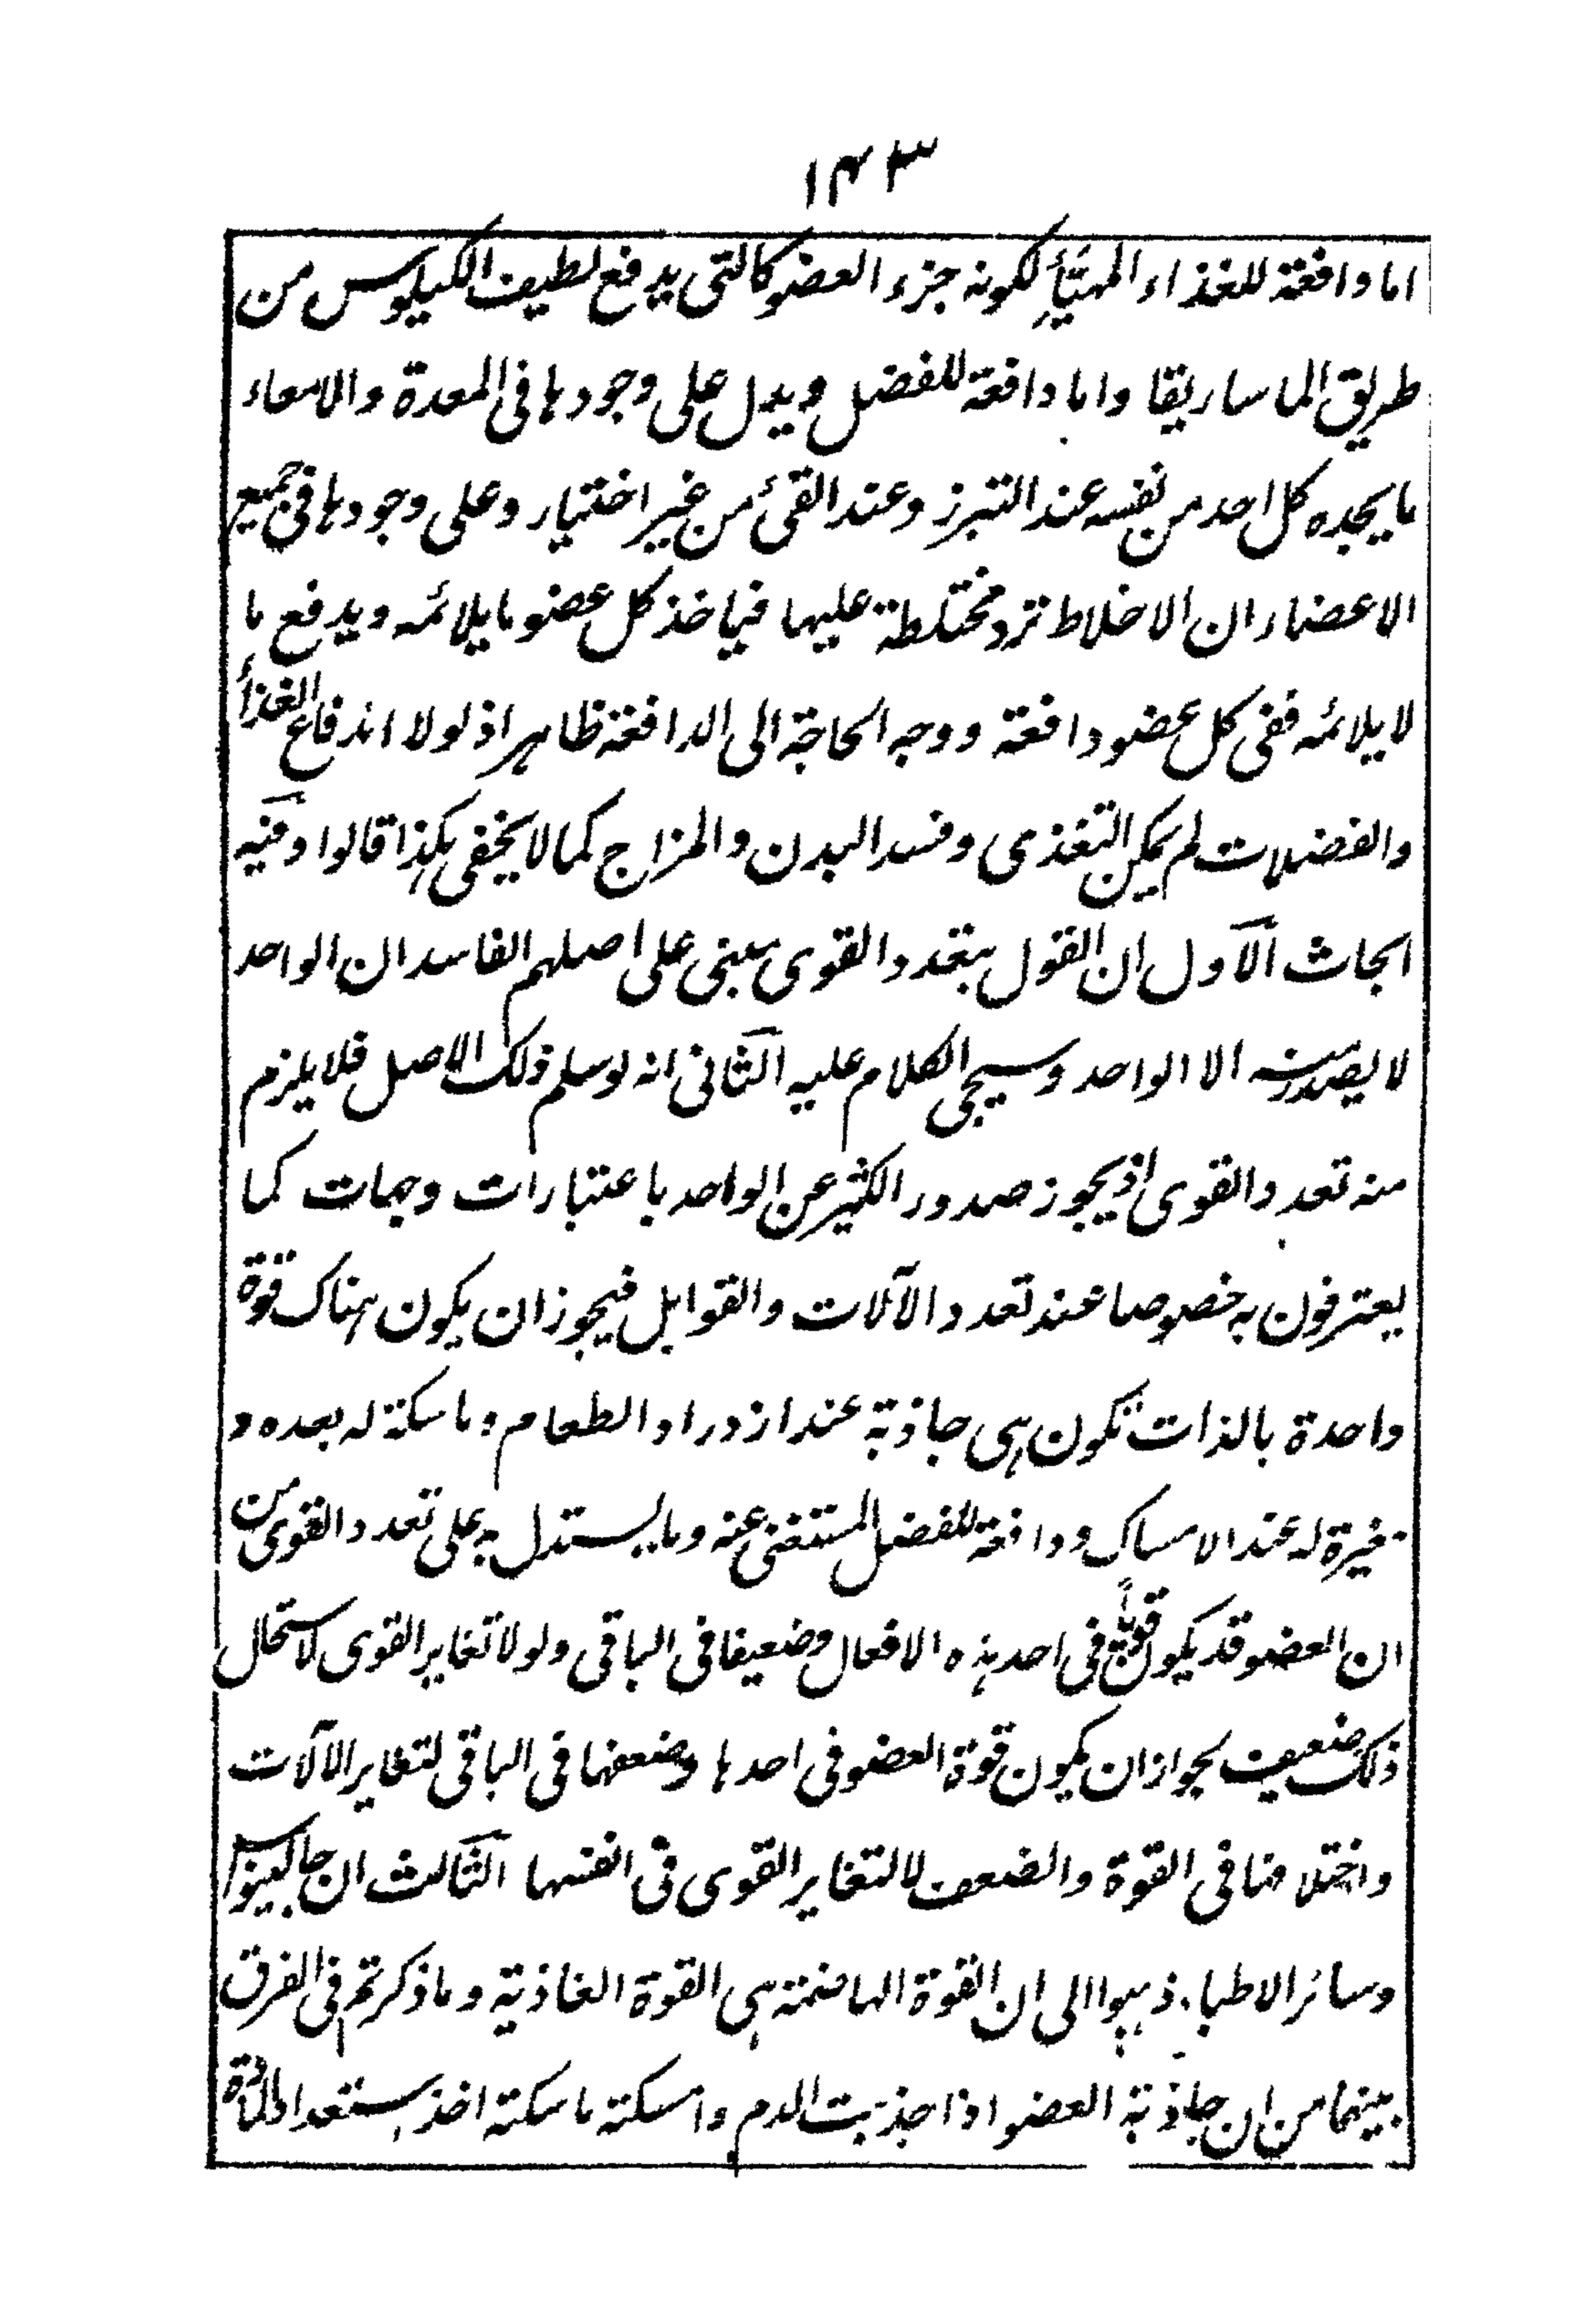 ١٤٣
اما دافعة للغذاء المهيَّأ لكونه جزء العضو كالتى يدفع لطيف الكيلوس من
طريق الماساريقا واما دافعة للفضل ويدل على وجودها فى المعدة والامعاء
ما يجده كل احد من نفسه عند التبرز وعند القئ من غير اختيار وعلى وجودها فى جميع
الاعضاء ان الاخلاط ترد مختلطة عليها فياخذ كل عضو ما يلائمه ويدفع ما
لا يلائمه ففى كل عضو دافعة ووجه الحاجة الى الدافعة ظاهر اذ لولا اندفاع الغذأ
والفضلات لم يمكن التغذى وفسد البدن والمزاج كما لا يخفى هكذا قالوا وفيه
ابحاث الاول ان القول بتعدد القوى مبنى على اصلهم الفاسد ان الواحد
لا يصدر منه الا الواحد وسيجى الكلام عليه الثانى انه لو سلم ذلك الاصل فلا يلزم
منه تعدد القوى اذ يجوز صدور الكثير عن الواحد باعتبارات وجهات كما
يعترفون به خصوصا عند تعدد الآلات والقوابل فيجوز ان يكون هناك قوة
واحدة بالذات تكون هى جاذبة عند ازدراد الطعام وماسكة له بعده و
مغيرة له عند الامساك ودافعة للفضل المستغنى عنه وما يستدل به على تعدد القوى من
ان العضو قد يكون قويًّا فى احد هذه الافعال وضعيفا فى الباقى ولولا تغاير القوى لاستحال
ذلك ضعيف لجواز ان يكون قوة العضو فى احدها وضعفها فى الباقى لتغاير الآلات
واختلافها فى القوة والضعف لا لتغاير القوى فى انفسها الثالث ان جالينوس
وسائر الاطباء ذهبوا الى ان القوة الهاضمة هى القوة الغاذية وما ذكرتم فى الفرق
بينهما من ان جاذبة العضو اذا جذبت الدم وامسكته ماسكته اخذ استعداد المادة